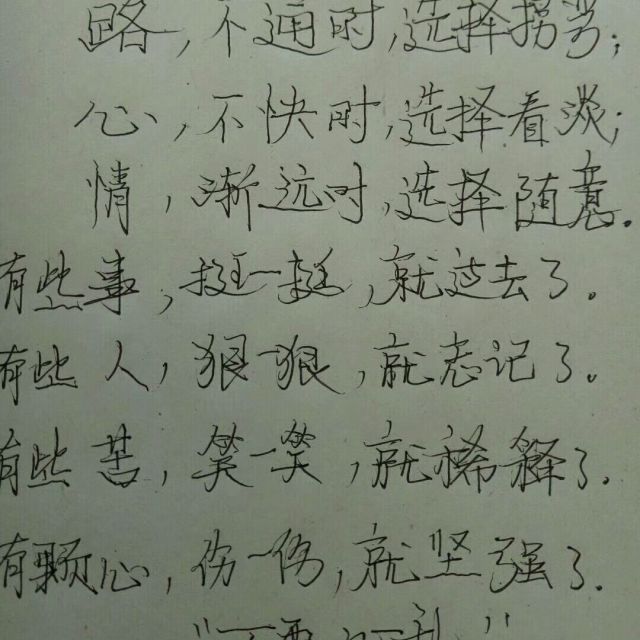 路，不通时，选择拐弯；
心，不快时，选择看淡；
情，渐远时，选择随意。
有些事，挺一挺，就过去了。
有些人，狠一狠，就忘记了。
有些苦，笑一笑，就稀释了。
有颗心，伤一伤，就坚强了。